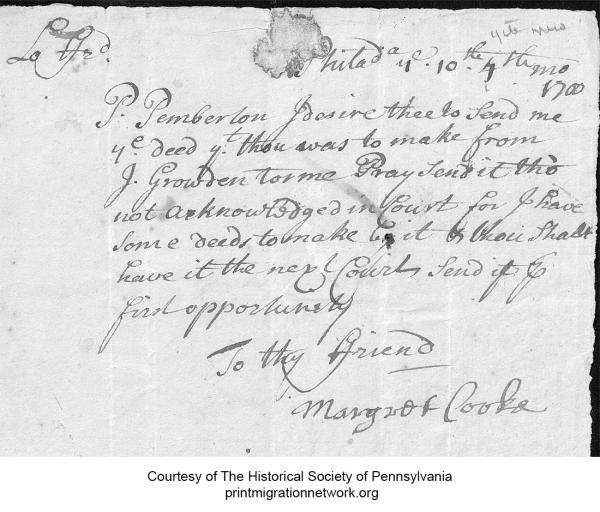 Lo Frd.
Philada ye. 10th. 4th mo
1700
P. Pemberton I desire thee to send me
ye. deed yt. thou was to make from
J. Growden to me Pray send it tho
not acknowledged in Court for I have
some deeds to make by it & thou shalt
have it the next Court send it
first opportunety
To thy Friend
Margret Cooke
Courtesy of The Historical Society of Pennsylvania
printmigrationnetwork.org